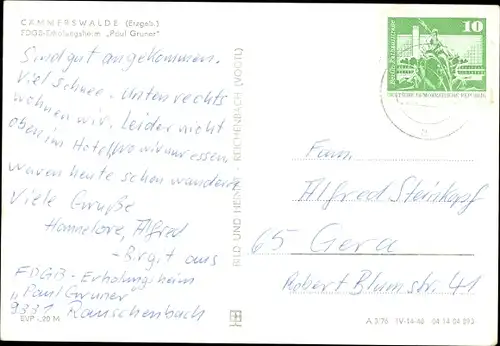 CÄMMERSWALDE (Erzgeb.)
FDGB-Erholungsheim „Paul Gruner"
Sind gut angekommen.
Viel Schnee. Unten rechts
wohnen wir. Leider nicht
oben im Hotel, wo wir nur essen
waren heute schon wandern.
Viele Grüße
Hannelore, Alfred
- Birgit aus
FDGB-Erholungsheim
„Paul Gruner"
9331 Rauschenbach
EVP -,20 M
BILD UND HEIMAT REICHENBACH (VOGTL)
10
DEUTSCHE DEMOKRATISCHE REPUBLIK
Fam.
Alfred Steinkopf
65 Gera
Robert Blumstr. 41
A 3/76 IV-14-48 04 14 04 093